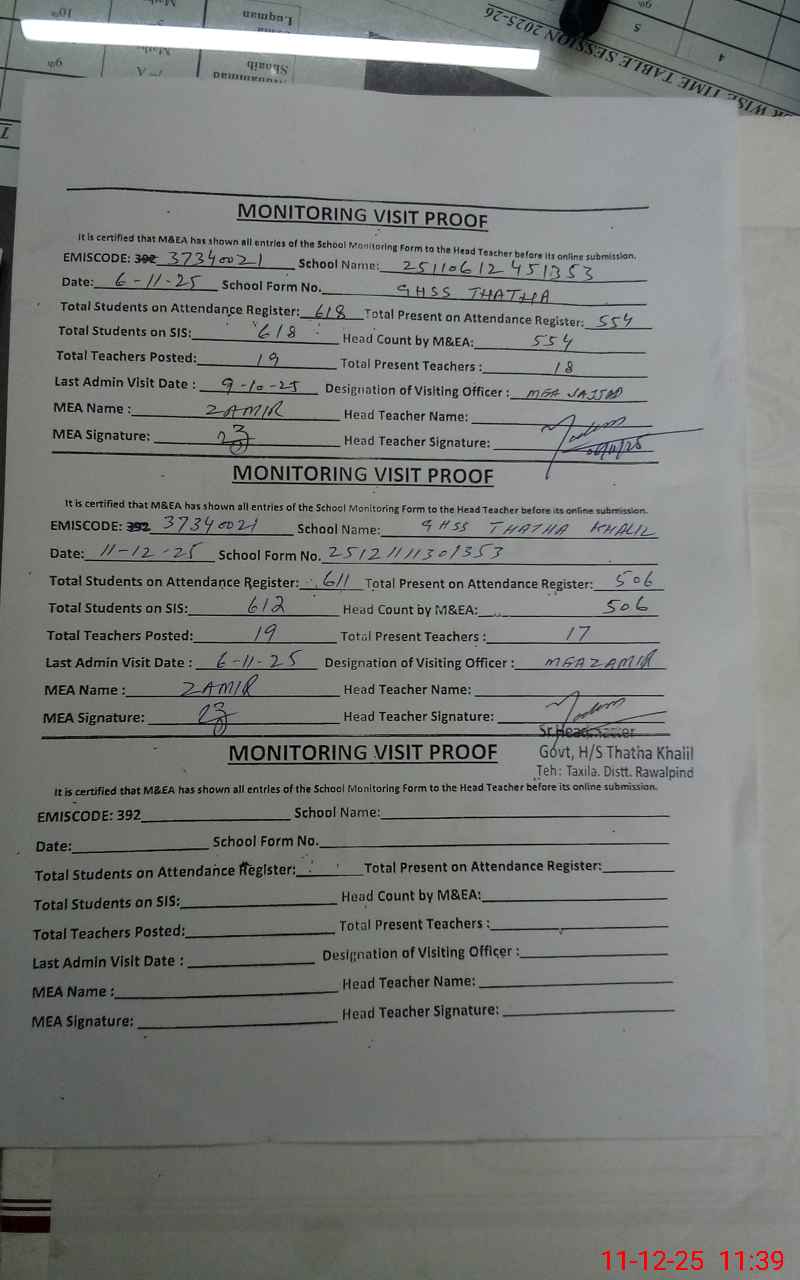 Luqman
10th
Shoaib
9th
7th A
5
4
9th
WISE TIME TABLE SESSION 2025-26
MONITORING VISIT PROOF
It is certified that M&EA has shown all entries of the School Monitoring Form to the Head Teacher before its online submission.
EMISCODE: 392 37340021 School Name: 25110612451353
Date: 6-11-25 School Form No. GHSS THATHA
Total Students on Attendance Register: 618 Total Present on Attendance Register: 554
Total Students on SIS: 618 Head Count by M&EA: 554
Total Teachers Posted: 19 Total Present Teachers : 18
Last Admin Visit Date : 9-10-25 Designation of Visiting Officer : MEA SAJJAD
MEA Name : ZAMIR Head Teacher Name:
MEA Signature: Head Teacher Signature: 06/11/25
MONITORING VISIT PROOF
It is certified that M&EA has shown all entries of the School Monitoring Form to the Head Teacher before its online submission.
EMISCODE: 392 37340021 School Name: GHSS THATHA KHALIL
Date: 11-12-25 School Form No. 25121111301353
Total Students on Attendance Register: 611 Total Present on Attendance Register: 506
Total Students on SIS: 612 Head Count by M&EA: 506
Total Teachers Posted: 19 Total Present Teachers : 17
Last Admin Visit Date : 6-11-25 Designation of Visiting Officer : MEA ZAMIR
MEA Name : ZAMIR Head Teacher Name:
MEA Signature: Head Teacher Signature:
Sr. Head Master
Govt, H/S Thatha Khalil
Teh: Taxila. Distt. Rawalpind
MONITORING VISIT PROOF
It is certified that M&EA has shown all entries of the School Monitoring Form to the Head Teacher before its online submission.
EMISCODE: 392 School Name:
Date: School Form No.
Total Students on Attendance Register: Total Present on Attendance Register:
Total Students on SIS: Head Count by M&EA:
Total Teachers Posted: Total Present Teachers :
Last Admin Visit Date : Designation of Visiting Officer :
MEA Name : Head Teacher Name:
MEA Signature: Head Teacher Signature:
11-12-25 11:39